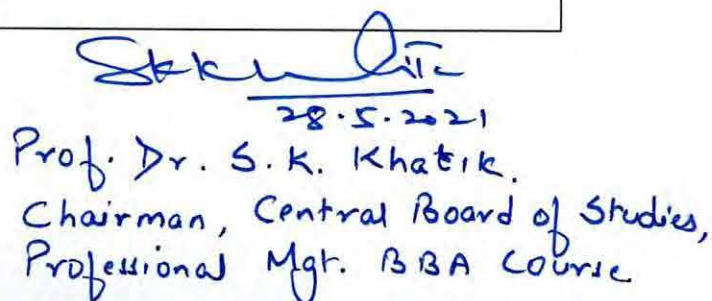 SKKhatik
28.5.2021
Prof. Dr. S. K. Khatik.
Chairman, Central Board of Studies,
Professional Mgt. BBA Course